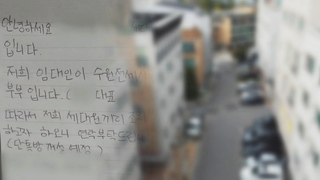 안녕하세요
입니다.
저희 임대인이 수원전세
부부 입니다. ( 대표
따라서 저희 세대원끼리
하고자 하오니 연락부탁드리
(단톡방 개설 예정)